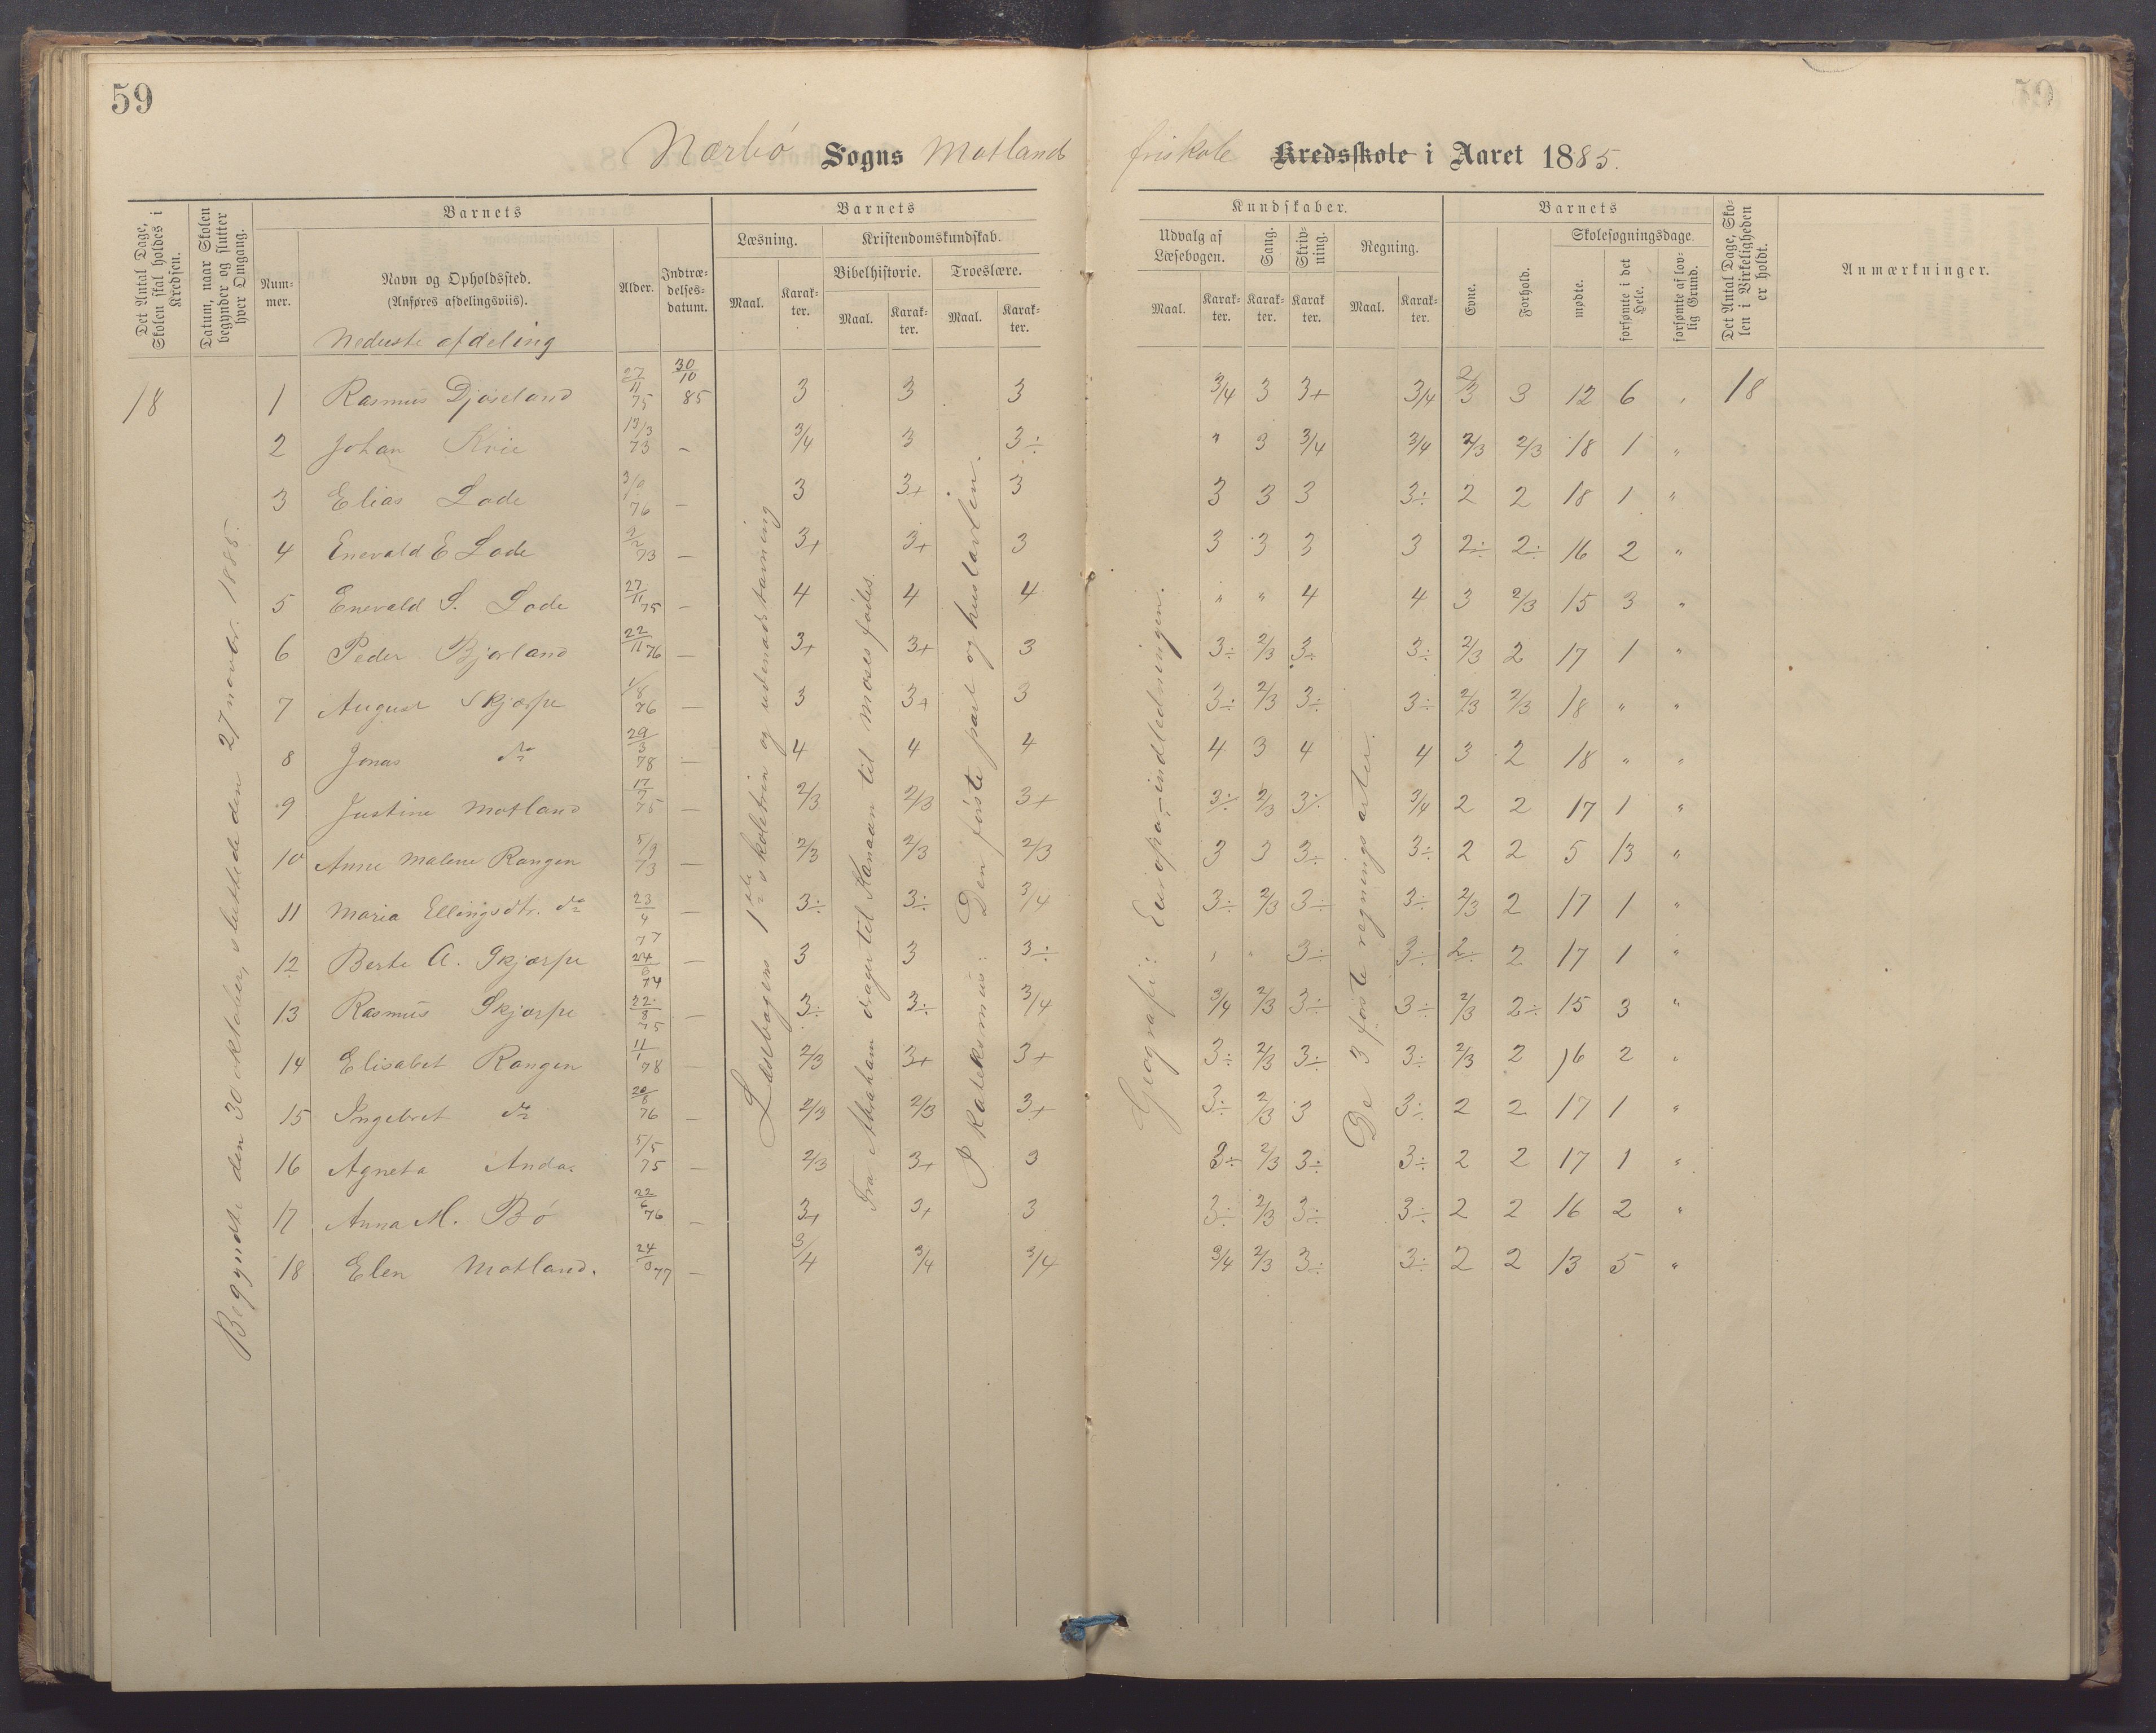 59
Nærbø Sogns Motland friskole Kredsskole i Aaret 1885.
Det Antal Dage, Skolen skal holdes i Kredsen.
Datum, naar Skolen begynder og slutter hver Omgang.
Barnets
Num-
mer.
Navn og Opholdssted.
(Anføres afdelingsviis).
Nederste afdeling
Alder.
Indtræ-
delses-
datum.
Barnets
Læsning.
Maal.
Karak-
ter.
Kristendomskundskab.
Bibelhistorie.
Maal.
Karak-
ter.
Troeslære.
Maal.
Karak-
ter.
Kundskaber.
Udvalg af
Læsebogen.
Maal.
Karak-
ter.
Sang.
Karak-
ter.
Skriv-
ning.
Karak
ter.
Regning.
Maal.
Karak-
ter.
Barnets
Evne.
Forhold.
Skolesøgningsdage.
mødte.
forsømte i det Hele.
forsømte af lov-
lig Grund.
Det Antal Dage, Sko-
len i Virkeligheden
er holdt.
Anmærkninger.
18
Begyndte den 30 oktober, sluttede den 27 novbr. 1885.
Læsebogens 1ste skoletrin og udenadstavning
Fra Abraham drager til Kanaan til moses fødes.
I Katekismus: Den første part og hustavlen.
Geografi: Europa-indledningen.
De 3 første regningsarter.
1 Rasmus Djøseland 27/11 75 30/10 85 3 3 3 3/4 3 3+ 3/4 2/3 3 12 6 18
2 Johan Kvie 13/3 73 - 3/4 3 3÷ " 3 3/4 3/4 2/3 2/3 18 1 "
3 Elias Lode 76 - 3 3+ 3 3 3 3 3÷ 2 2 18 1 "
4 Enevald E Lode 73 - 3+ 3+ 3 3 3 3 3 2÷ 2÷ 16 2 "
5 Enevald S. Lode 27/11 75 - 4 4 4 " " 4 4 3 2/3 15 3 "
6 Peder Bjorland 22/11 76 - 3+ 3+ 3 3÷ 2/3 3÷ 3÷ 2/3 2 17 1 "
7 August Skjærpe 1/8 76 - 3 3+ 3 3÷ 2/3 3÷ 3÷ 2/3 2/3 18 " "
8 Jonas do 29/3 78 - 4 4 4 4 3 4 4 3 2 18 " "
9 Justine Motland 17/7 75 - 2/3 2/3 3+ 3÷ 2/3 3÷ 3/4 2 2 17 1 "
10 Anne Malene Rangen 5/9 73 - 2/3 2/3 2/3 3 3 3÷ 3÷ 2 2 5 13 "
11 Maria Ellingsdtr. do 23/4 77 - 3÷ 3÷ 3/4 3÷ 2/3 3÷ 3÷ 2/3 2 17 1 "
12 Berte A. Skjærpe 74 - 3 3 3÷ " " 3÷ 3÷ 2÷ 2 17 1 "
13 Rasmus Skjærpe - 3÷ 3÷ 3/4 3/4 2/3 3÷ 3÷ 2/3 2÷ 15 3 "
14 Elisabet Rangen 11/1 78 - 2/3 3+ 3+ 3÷ 2/3 3÷ 3÷ 2/3 2 16 2 "
15 Ingebret do 76 - 2/3 2/3 3+ 3÷ 2/3 3 3÷ 2 2 17 1 "
16 Agneta Anda 5/5 75 - 2/3 3+ 3 3÷ 2/3 3÷ 3÷ 2 2 17 1 "
17 Anna M. Bø 22/6 76 - 3+ 3+ 3 3÷ 2/3 3÷ 3÷ 2 2 16 2 "
18 Elen Motland. 77 - 3/4 3/4 3/4 3/4 2/3 3÷ 3÷ 2 2 13 5 "